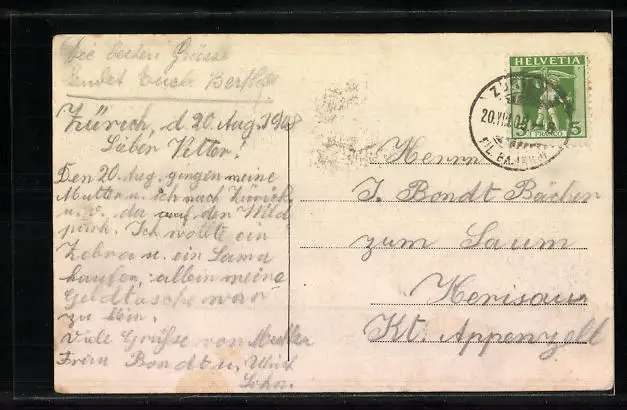 Die besten Grüsse
sendet Euch Bertha
Zürich, d 20. Aug. 1908
Lieber Vetter!
Den 20. Aug. gingen meine
Mutter u. ich nach Zürich
u. v. da auf den Wild
park. Ich wollte ein
Zebra u. ein Lama
kaufen, allein meine
Geldtasche war
zu klein.
Viele Grüsse von Mutter
Frau Bondt u. Ulrich
Sohn.
HELVETIA
5 FRANCO 5
20.VIII.08
Herrn
J. Bondt Bächer
zum Saum
Herisau
Kt. Appenzell